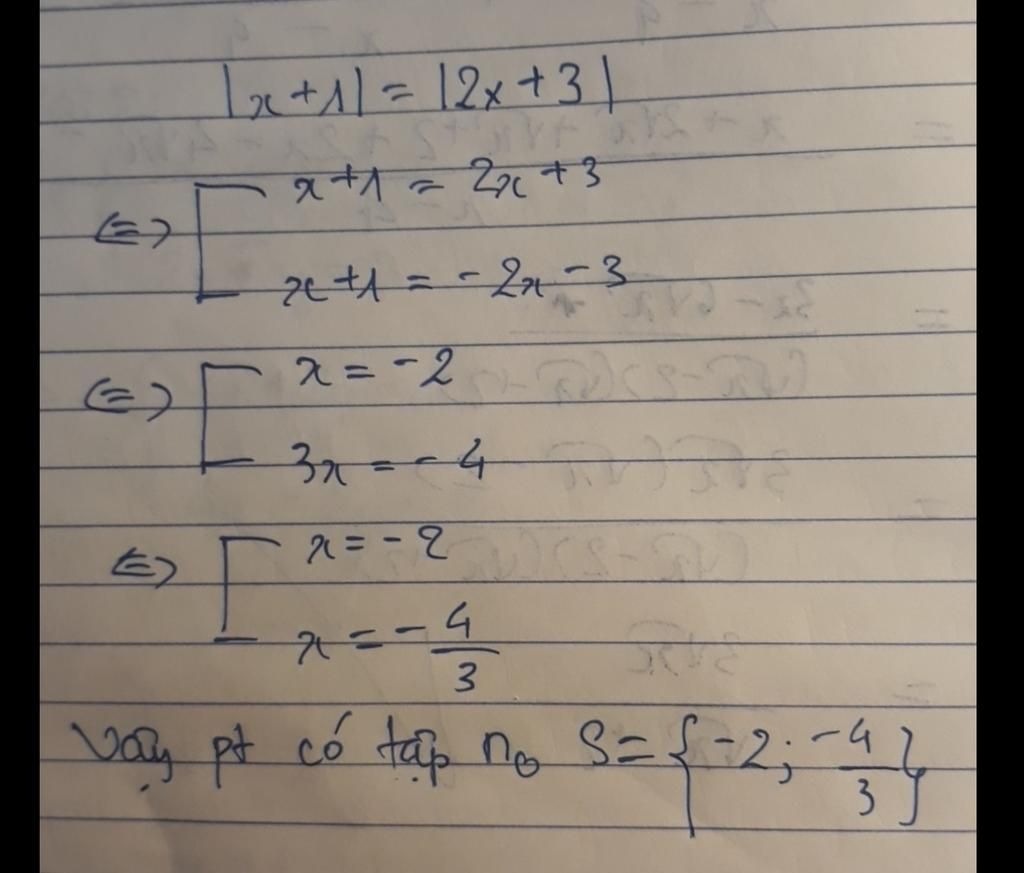 |x+1| = |2x+3|
⇔ [ x+1 = 2x+3
x+1 = -2x-3
⇔ [ x = -2
3x = -4
⇔ [ x = -2
x = -4/3
Vậy pt có tập n₀ S = {-2; -4/3}